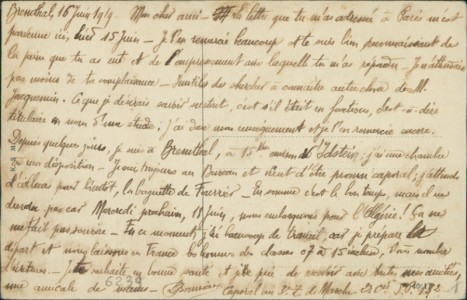 Bremthal, 16 Juin 1919. Mon cher ami - La lettre que tu m'as adressée à Paris m'est
parvenue ici, hier 15 Juin - Je t'en remercie beaucoup et te suis bien reconnaissant de
la peine que tu as eue et de l'empressement avec laquelle tu m'as répondu. Je n'attendais
pas moins de ta complaisance - Inutile de chercher à connaître autre chose de M.
Jacquemin. Ce que je désirais savoir surtout, c'est s'il était en fonctions, c'est-à-dire
titulaire en nom d'une étude; j'ai donc mon renseignement et je t'en remercie encore.
Depuis quelques jours, je suis à Bremthal, à 15 km environ d'Idstein; j'ai une chambre
à ma disposition - Je suis toujours au Bureau et vient d'être promu caporal; j'attends
d'ailleurs pour bientôt, la baguette de Fourrier - En somme c'est le bon temps, mais il ne
durera pas car Mercredi prochain, 18 Juin, nous embarquons pour l'Algérie! Ça ne
me fait pas sourire - En ce moment, j'ai beaucoup de travail, car je prépare le
départ et nous laissons en France les hommes des classes 07 à 15 incluse, bon nombre
d'entre eux - Je te souhaite en bonne santé et te prie de recevoir avec toutes mes amitiés,
une amicale poignée de mains -
Caporal au 3e Z de Marche
6239